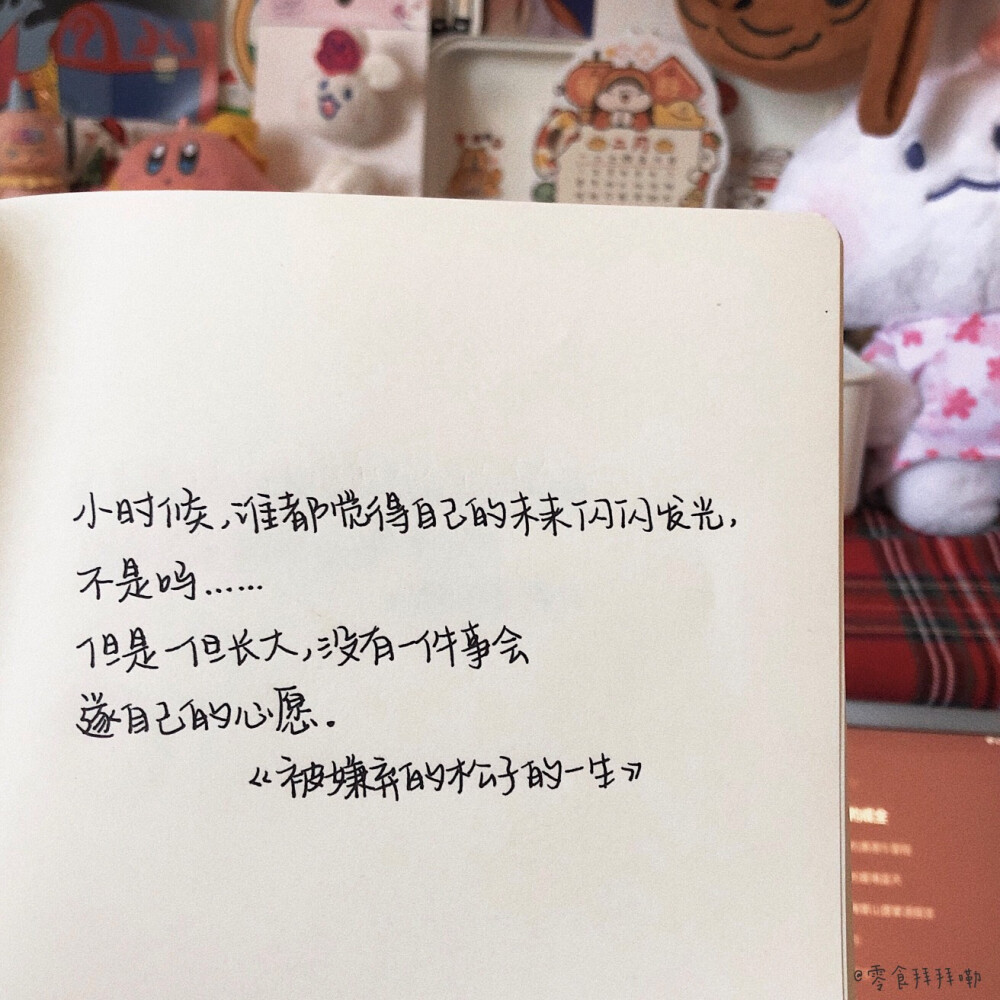 小时候,谁都觉得自己的未来闪闪发光,
不是吗……
但是一但长大,没有一件事会
遂自己的心愿.
《被嫌弃的松子的一生》
@零食拜拜嘞